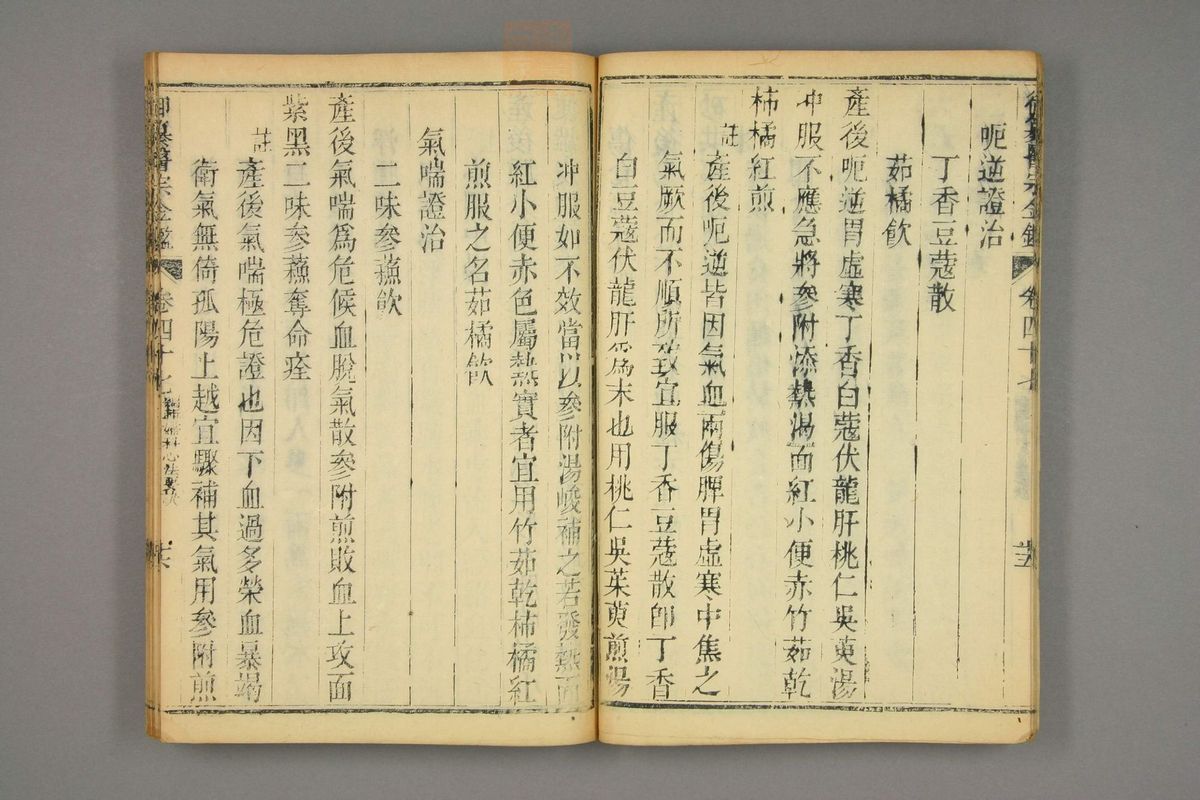 御纂醫宗金鑑 卷四十七 十五
呃逆證治
丁香豆蔻散
茹橘飲
產後呃逆胃虛寒丁香白蔻伏龍肝桃仁吳萸湯
冲服不應急將參附添熱渴面紅小便赤竹茹乾
柿橘紅煎
註產後呃逆皆因氣血兩傷脾胃虛寒中焦之
氣厥而不順所致宜服丁香豆蔻散卽丁香
白豆蔻伏龍肝爲末也用桃仁吳茱萸煎湯
冲服如不效當以參附湯峻補之若發熱面
紅小便赤色屬熱實者宜用竹茹乾柿橘紅
煎服之名茹橘飲
氣喘證治
二味參蘓飲
產後氣喘爲危候血脫氣散參附煎敗血上攻面
紫黑二味參蘓奪命痊
註產後氣喘極危證也因下血過多榮血暴竭
衛氣無倚孤陽上越宜驟補其氣用參附煎
御纂醫宗金鑑 卷四十七 婦科心法要訣